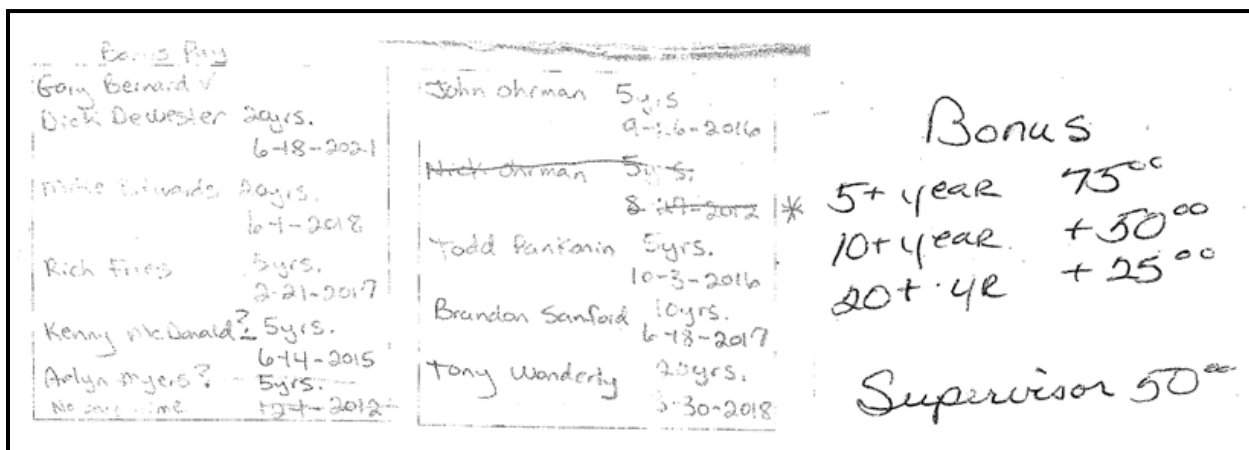 Bonus Pay
Gary Bernard √
Dick Dewester 20yrs.
6-18-2021
Mike Edwards 20yrs.
6-1-2018
Rich Fries 5yrs.
2-21-2017
Kenny McDonald? 5yrs.
6-14-2015
Arlyn Myers? 5yrs.
No
12-1-2012
John Ohrman 5yrs
9-26-2016
Nick Ohrman 5yrs.
8 2012
Todd Pankonin 5yrs.
10-3-2016
Brandon Sanford 10yrs.
6-18-2017
Tony Wonderly 20yrs.
30-2018
*
Bonus
5+ year 75⁰⁰
10+ year +50⁰⁰
20+ yr +25⁰⁰
Supervisor 50⁰⁰